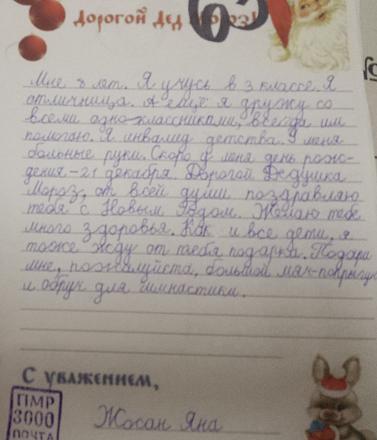 Дорогой Дед Мороз!
63
Мне 8 лет. Я учусь в 3 классе. Я
отличница. А ещё я дружу со
всеми одно-классниками, всегда им
помогаю. Я инвалид детства. У меня
больные руки. Скоро у меня день рож-
дения - 21 декабря. Дорогой Дедушка
Мороз, от всей души поздравляю
тебя с Новым Годом. Желаю тебе
много здоровья. Как и все дети, я
тоже жду от тебя подарка. Подари
мне, пожалуйста, большой мяч-попрыгун
и обруч для гимнастики.
С уважением,
Жосан Яна
ПМР
3000
ПОЧТА